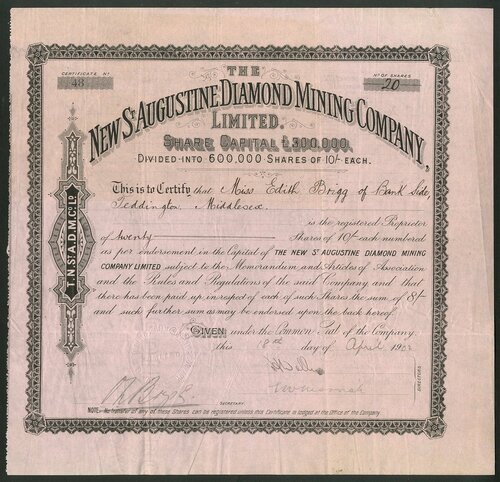 CERTIFICATE No
48
No OF SHARES
20
THE
NEW St. AUGUSTINE DIAMOND MINING COMPANY,
LIMITED.
SHARE CAPITAL £300,000,
DIVIDED INTO 600,000 SHARES OF 10/- EACH.
This is to Certify that Miss Edith Brigg of Bank Side,
Teddington, Middlesex
is the registered Proprietor
of twenty Shares of 10/- each numbered
as per endorsement in the Capital of THE NEW St AUGUSTINE DIAMOND MINING
COMPANY LIMITED subject to the Memorandum and Articles of Association
and the Rules and Regulations of the said Company and that
there has been paid up in respect of each of such Shares the sum of 8/-
and such further sum as may be endorsed upon the back hereof.
GIVEN under the Common Seal of the Company,
this 18th day of April 190
DIRECTORS.
SECRETARY.
NOTE:- No transfer of any of these Shares can be registered unless this Certificate is lodged at the Office of the Company.
T.N.S.A.D.M.C. Ld.